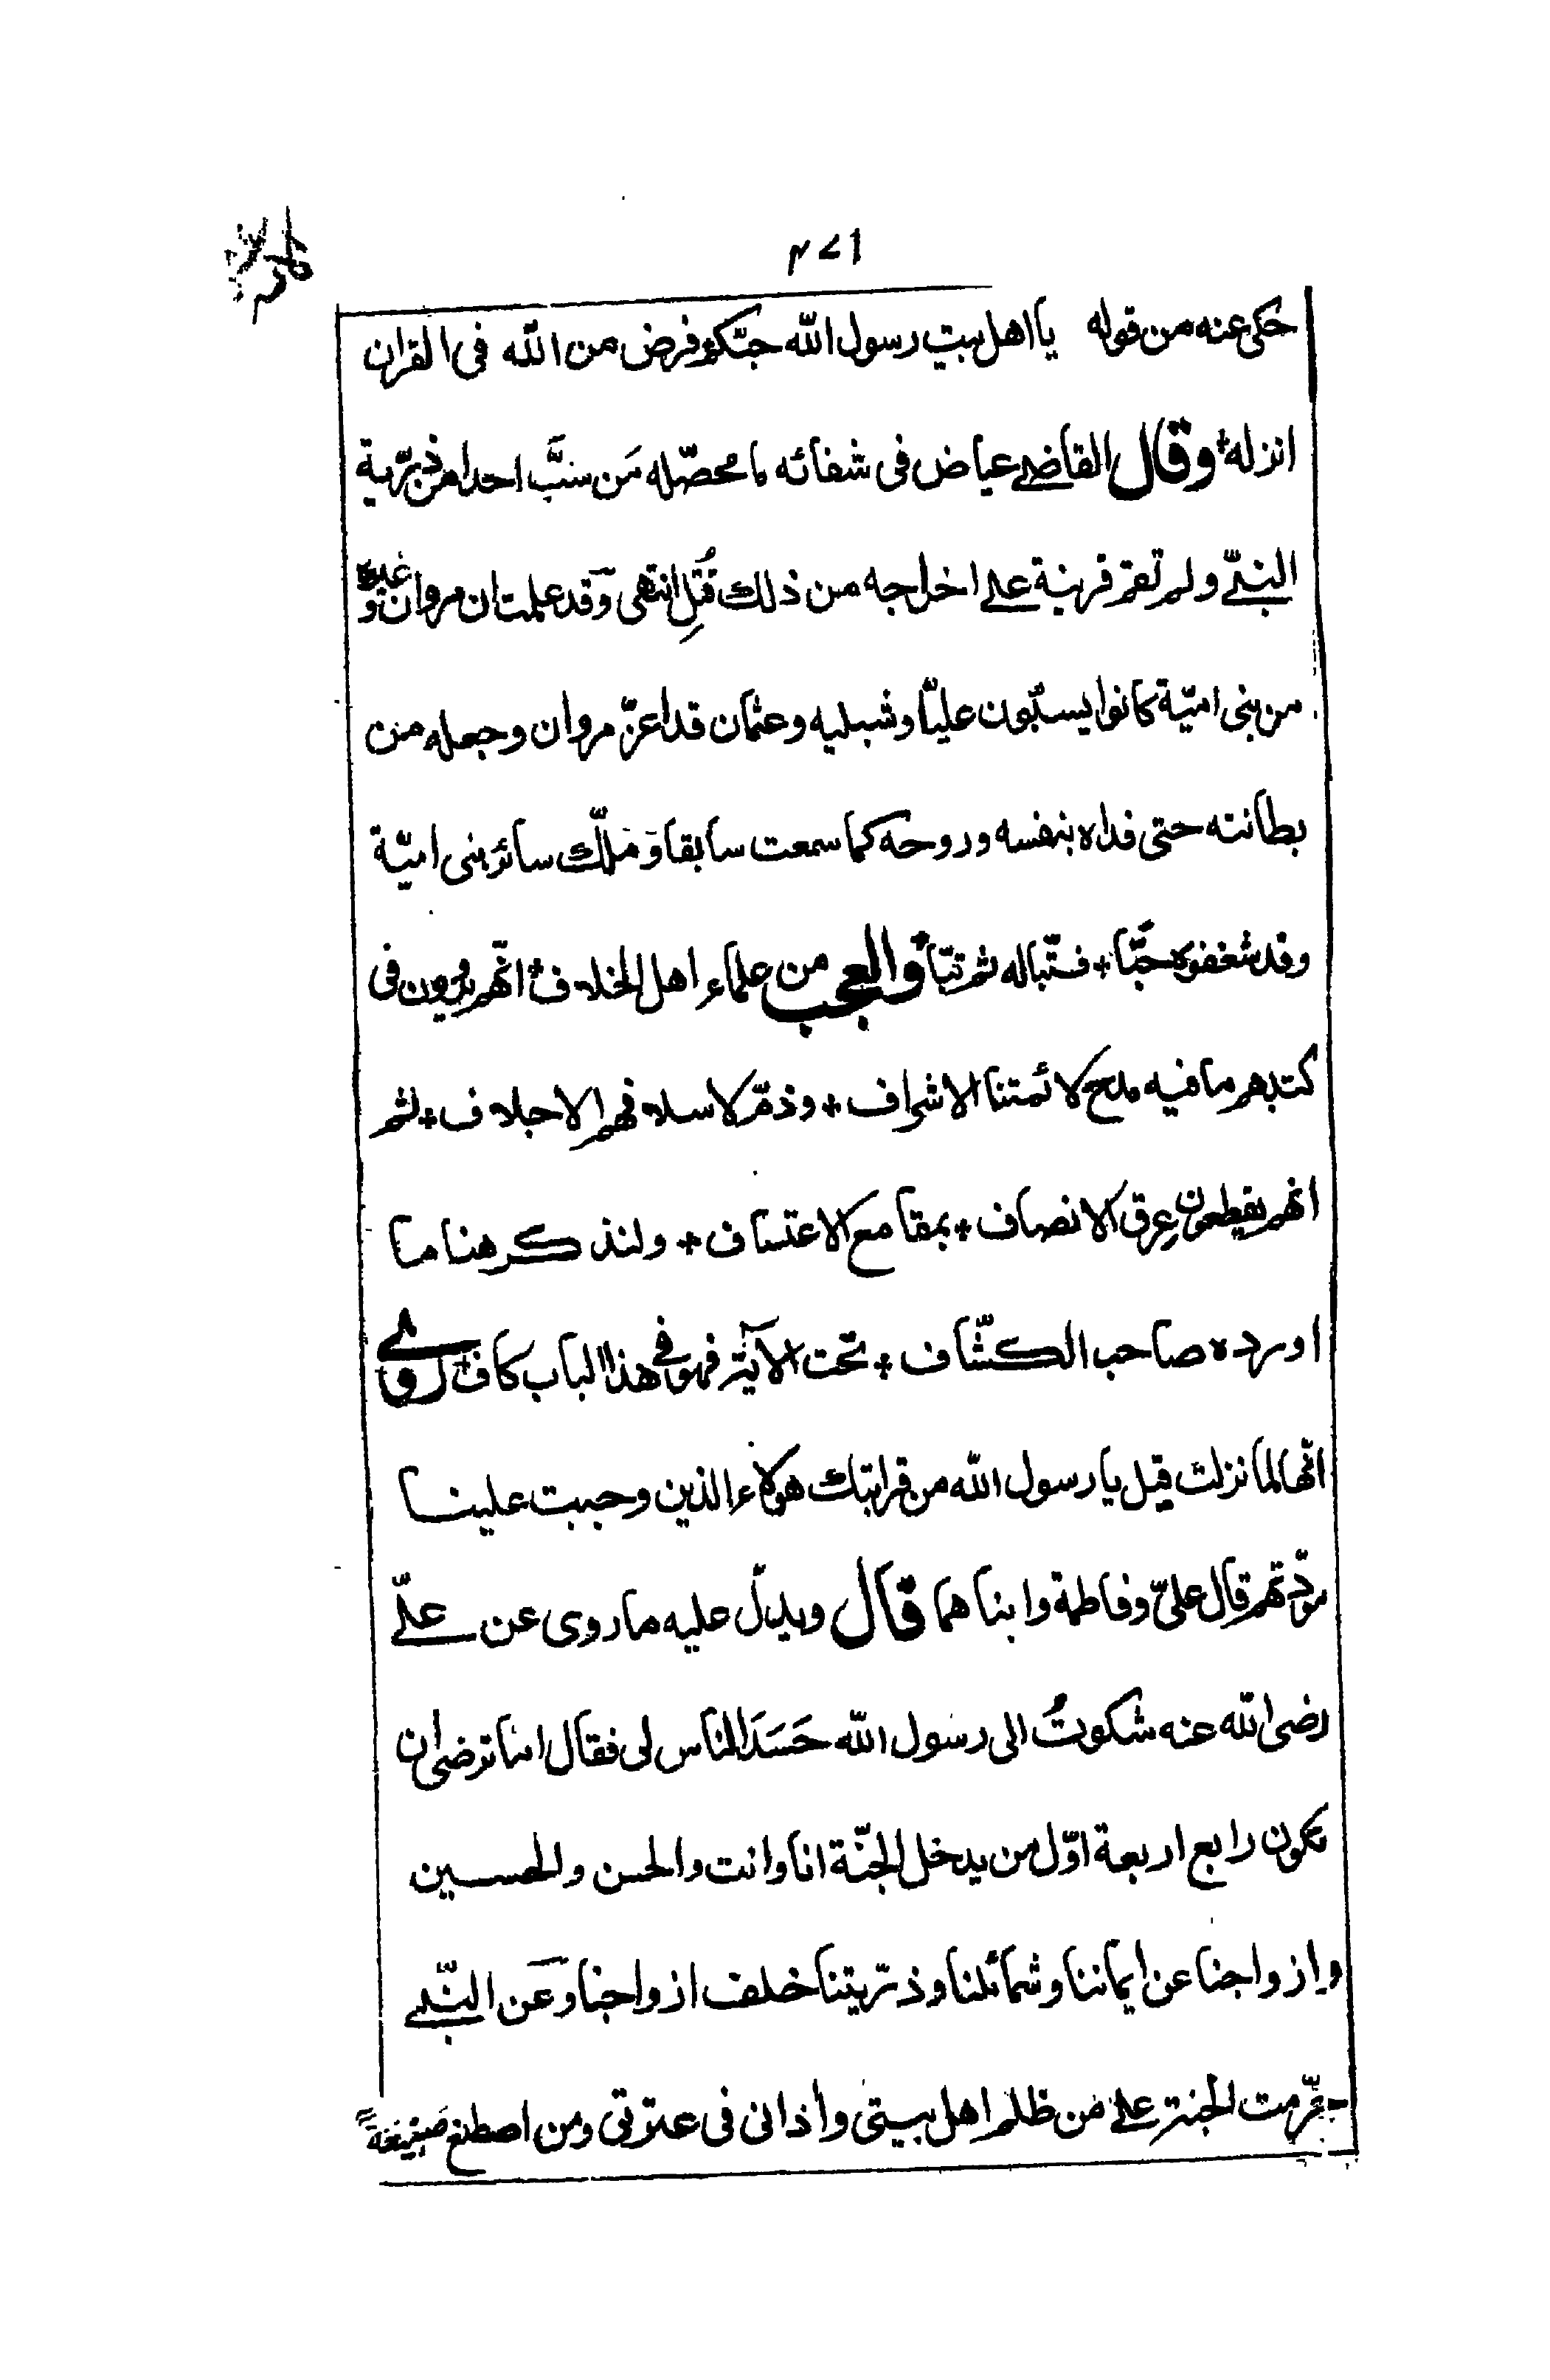 ٤٧١
حكى عنه من قوله يا اهل بيت رسول الله حبّكم فرض من الله فى القران
انزله* وقال القاضے عياض فى شفائه ما محصّله مَن سبَّ احدا من ذرّية
النبىّے ولم تقم قرينة علے اخراجه من ذلك قُتِل انتهى وقد علمت ان مروان وغيره
من بنى اميّة كانوا يسبّون عليّا وشبليه وعثمان قد اعزّ مروان وجعله من
بطانته حتى فداه بنفسه وروحه كما سمعت سابقا وَملّك سائر بنى اميّة
وقد شغفوه حبّا* فتبّا له ثم تبّا* والعجب من علماء اهل الخلاف* انّهم يروون فى
كتبهم ما فيه مدح لائمتنا الاشراف* وذمّ لاسلافهم الاجلاف* ثم
انهم يقطعون عِرق الانصاف* بمقامع الاعتساف* ولنذكر هنا ما
اورده صاحب الكشّاف* تحت الآية فهو فے هذا الباب كاف* روے
انّها لما نزلت قيل يا رسول الله من قرابتك هؤلاء الذين وجبت علينا
مودّتهم قال علىّ وفاطمة وابناهما قال ويدلّ عليه ما روى عن علےّ
رضى الله عنه شكوتُ الى رسول الله حَسَدَ الناس لى فقال اما ترضى ان
تكون رابع اربعة اوّل من يدخل الجنّة انا وانت والحسن والحسين
وازواجنا عن ايماننا وشمائلنا وذرّيتنا خلف ازواجنا وَعَن النبىّے
حرّمت الجنة علے من ظلم اهل بيتى وآذانى فى عترتى ومن اصطنع صنيعةً